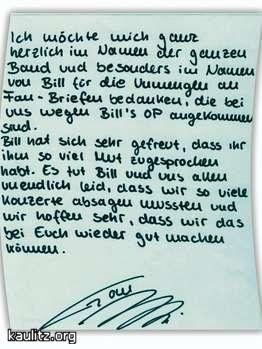 Ich möchte mich ganz
herzlich im Namen der ganzen
Band und besonders im Namen
von Bill für die Unmengen an
Fan-Briefen bedanken, die bei
uns wegen Bill's OP angekommen
sind.
Bill hat sich sehr gefreut, dass ihr
ihm so viel Mut zugesprochen
habt. Es tut Bill und uns allen
unendlich leid, dass wir so viele
Konzerte absagen mussten und
wir hoffen sehr, dass wir das
bei Euch wieder gut machen
können.
kaulitz.org